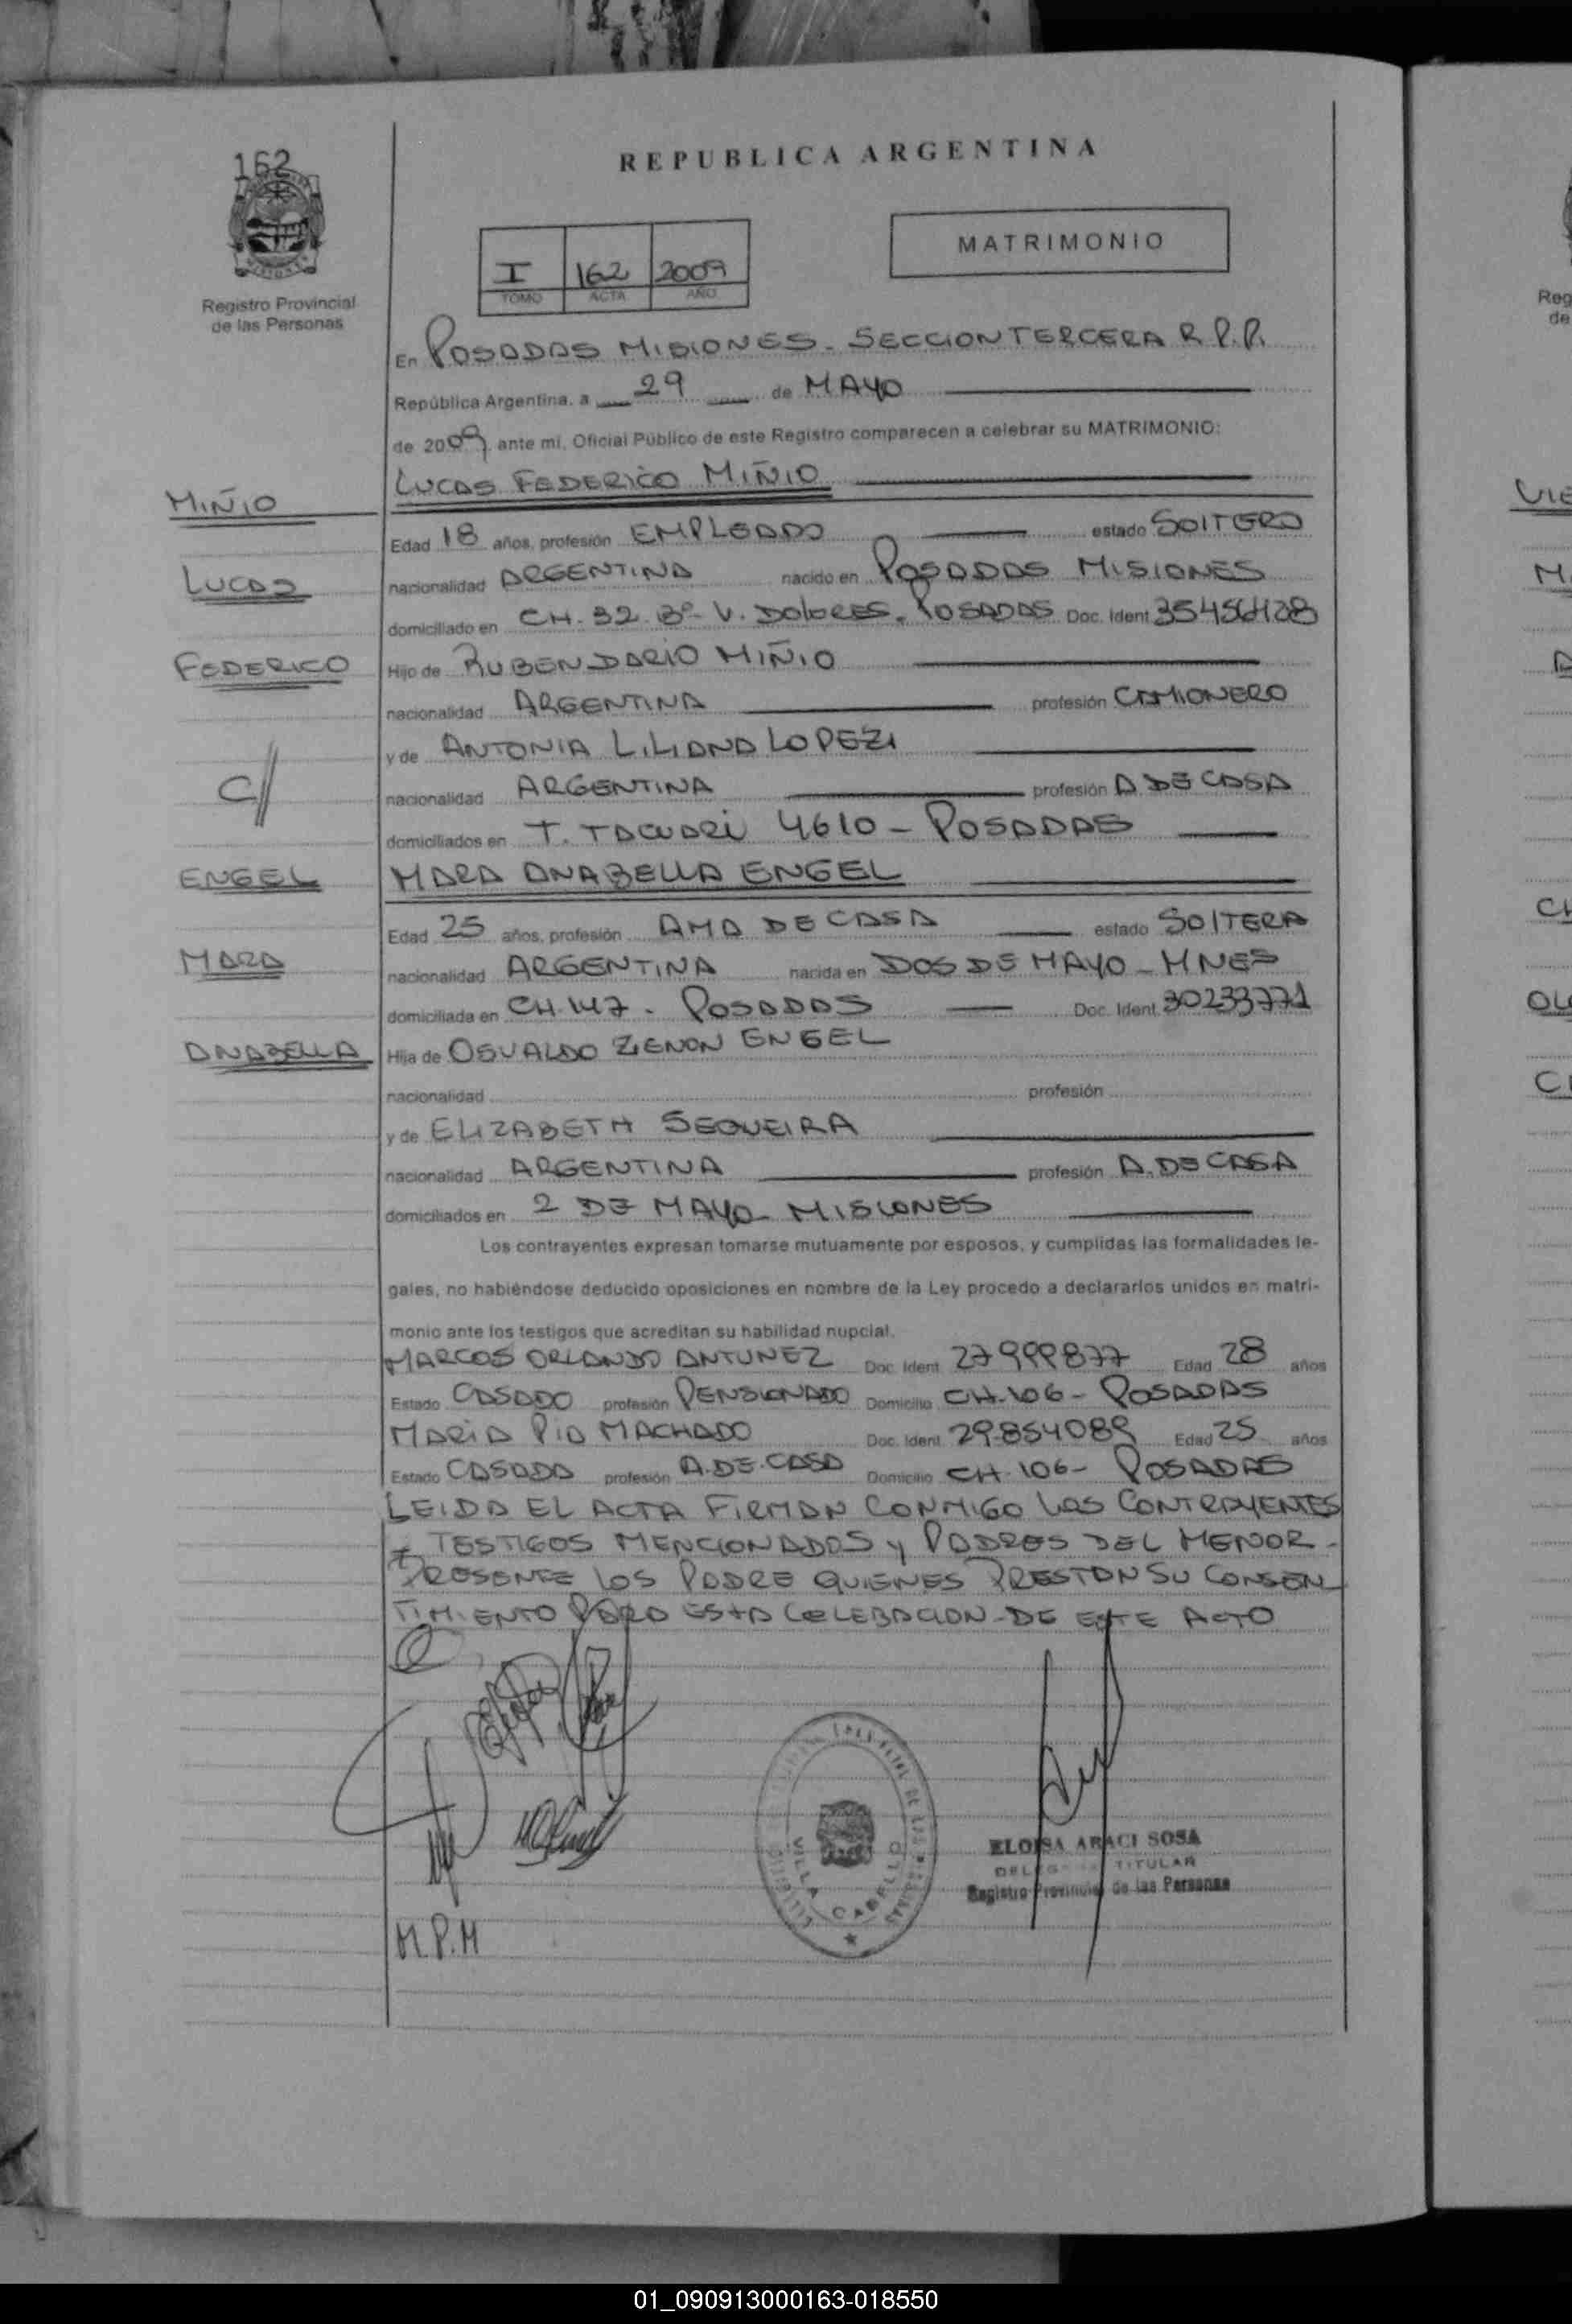 162
REPUBLICA ARGENTINA
MATRIMONIO
I 162 2009
TOMO ACTA AÑO
Registro Provincial
de las Personas
En POSADAS MISIONES - SECCION TERCERA R.P.P.
República Argentina, a 29 de MAYO
de 2009 ante mi, Oficial Público de este Registro comparecen a celebrar su MATRIMONIO:
LUCAS FEDERICO MIÑIO
MIÑIO
Edad 18 años, profesión EMPLEADO estado SOLTERO
LUCAS
nacionalidad ARGENTINA nacido en POSADAS MISIONES
domiciliado en CH. 32 Bº- V. DOLORES. POSADAS Doc. Ident.
FEDERICO
Hijo de RUBEN DARIO MIÑIO
nacionalidad ARGENTINA profesión CAMIONERO
y de ANTONIA LILIANA LOPEZ
C//
nacionalidad ARGENTINA profesión A DE CASA
domiciliados en T. TACUARI 4610 - POSADAS
ENGEL
MARA ANABELLA ENGEL
Edad 25 años, profesión AMA DE CASA estado SOLTERA
MARA
nacionalidad ARGENTINA nacida en DOS DE MAYO - MNES
domiciliada en CH. 147 - POSADAS Doc. Ident. 30233771
ANABELLA
Hija de OSVALDO ZENON ENGEL
nacionalidad profesión
y de ELIZABETH SEQUEIRA
nacionalidad ARGENTINA profesión A. DE CASA
domiciliados en 2 DE MAYO - MISIONES
Los contrayentes expresan tomarse mutuamente por esposos, y cumplidas las formalidades le-
gales, no habiéndose deducido oposiciones en nombre de la Ley procedo a declararlos unidos en matri-
monio ante los testigos que acreditan su habilidad nupcial.
MARCOS ORLANDO ANTUNEZ Doc. Ident. 27999877 Edad 28 años
Estado CASADO profesión PENSIONADO Domicilio CH. 106 - POSADAS
MARIA PIA MACHADO Doc. Ident. 29.854089 Edad 25 años
Estado CASADA profesión A. DE. CASA Domicilio CH. 106 - POSADAS
LEIDA EL ACTA FIRMAN CONMIGO LOS CONTRAYENTES
TESTIGOS MENCIONADOS y PADRES DEL MENOR -
PRESENTE LOS PADRE QUIENES PRESTAN SU CONSEN
TIMIENTO PARA ESTA CELEBACION - DE ESTE ACTO
VILLA CABELLO
ELOISA ARACI SOSA
DELEGADA TITULAR
Registro Provincial de las Personas
M.P.M
01_090913000163-018550